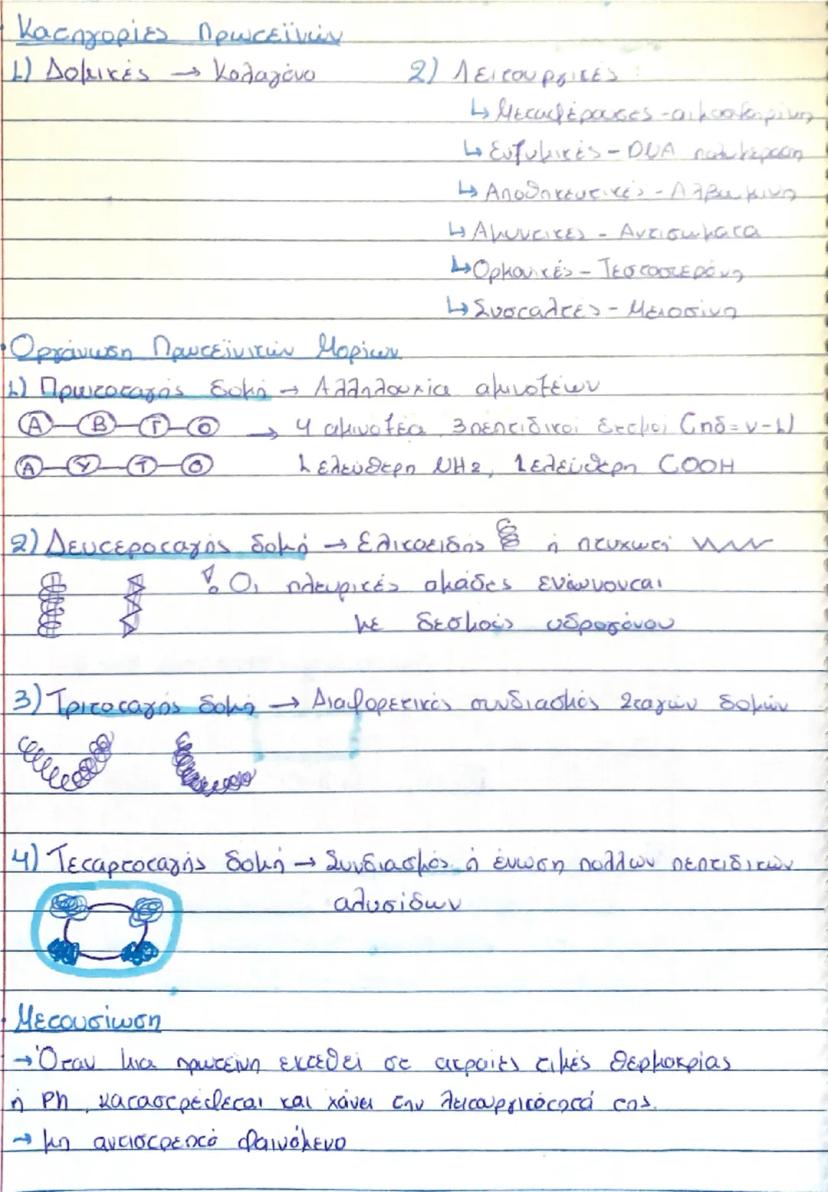 Κατηγορίες Πρωτεϊνών
1) Δομικές → Κολαγόνο
2) Λειτουργικές:
↳ Μεταφέρουσες - αιμοσφαιρίνη
↳ Ενζυμικές - DNA πολυμεράση
↳ Αποθηκευτικές - Αλβουμίνη
↳ Αμυντικές - Αντισώματα
↳ Ορμονικές - Τεστοστερόνη
↳ Συσταλτές - Μειοσίνη
• Οργάνωση Πρωτεϊνικών Μορίων
1) Πρωτοταγής δομή → Αλληλουχία αμινοξέων
Α Β Γ Ο → 4 αμινοξέα, 3 πεπτιδικοί δεσμοί (πδ = ν - 1)
Α Υ Τ Ο 1 ελεύθερη NH2, 1 ελεύθερη COOH
2) Δευτεροταγής δομή → Ελικοειδής ή πτυχωτή
! Οι πλευρικές ομάδες ενώνονται
με δεσμούς υδρογόνου
3) Τριτοταγής δομή → Διαφορετικός συνδιασμός 2ταγών δομών
4) Τεταρτοταγής δομή → Συνδιασμός ή ένωση πολλών πεπτιδικών
αλυσίδων
• Μετουσίωση
→ Όταν μια πρωτεϊνη εκτεθεί σε ακραίες τιμές θερμοκρίας
ή Ph, καταστρέφεται και χάνει την λειτουργικότητά της.
→ μη αντιστρεπτό φαινόμενο